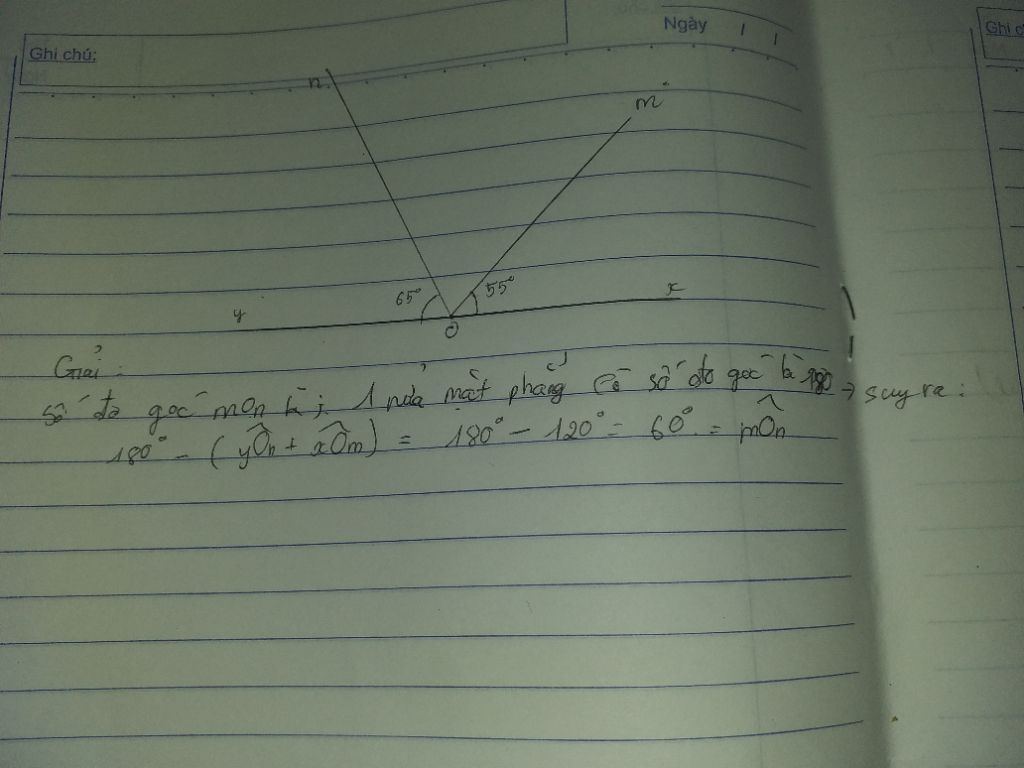 Ghi chú:
Ngày / /
Ghi c
n
m
65°
55°
y
x
O
Giải:
Số đo góc mOn là: 1 nửa mặt phẳng có số đo góc là 180 → suy ra:
180° - (yÔn + xÔm) = 180° - 120° = 60° = mÔn